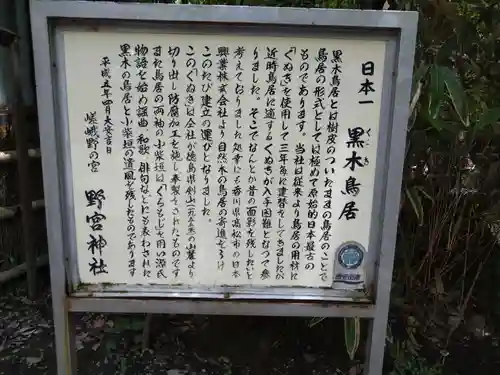 日本一
黒木鳥居
くろき
黒木鳥居とは樹皮のついたままの鳥居のことで
鳥居の形式としては極めて原始的日本最古の
ものであります。当社は従来より鳥居の用材に
くぬぎを使用して三年毎に建替をしてきましたが
近時鳥居に適するくぬぎが入手困難となつて参
りました。そこでなんとか昔の面影を残したいと
考えておりました処幸にも香川県高松市の日本
興業株式会社より自然木の鳥居の寄進をうけ
このたび建立の運びとなりました。
このくぬぎは会社が徳島県剣山の山麓より
切り出し防腐加工を施し奉製されたものです
また鳥居の両袖の小柴垣はくろもじを用い源氏
物語を始め謡曲 和歌 俳句などにも表わされた
黒木の鳥居と小柴垣の遺風を残すものであります
平成五年四月大安吉日
嵯峨野の宮
野宮神社